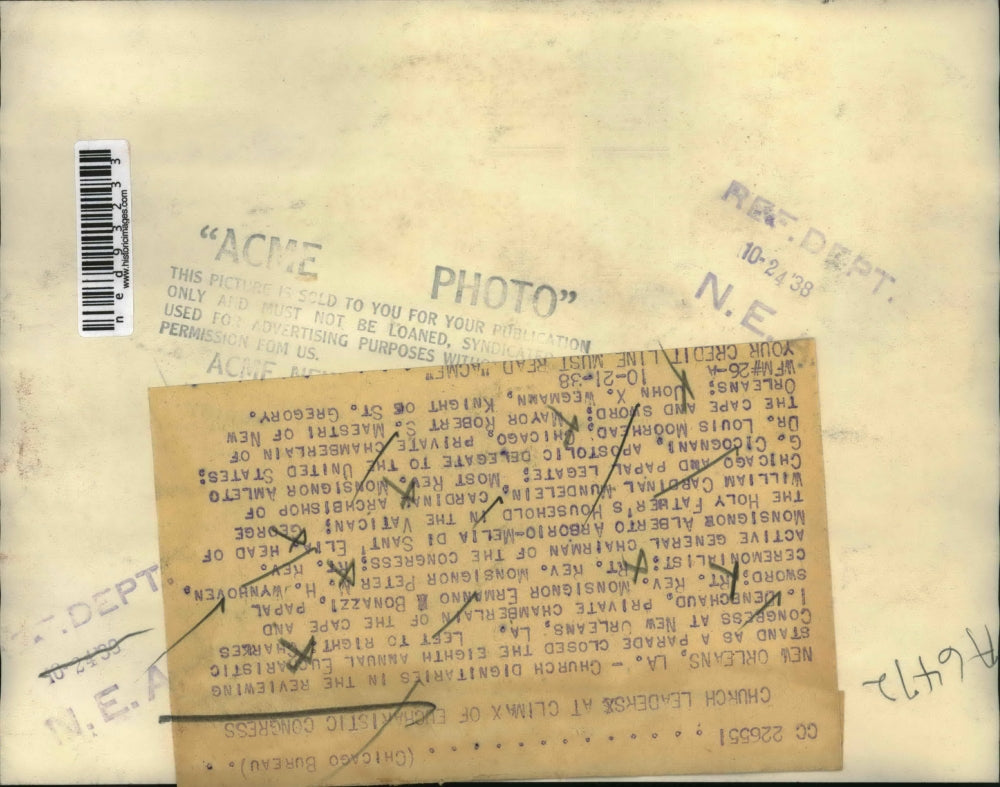 ned93233
www.historicimages.com
"ACME
PHOTO"
THIS PICTURE IS SOLD TO YOU FOR YOUR PUBLICATION
ONLY AND MUST NOT BE LOANED, SYNDICATED
USED FOR ADVERTISING PURPOSES
PERMISSION FOM US.
ACME
REF. DEPT.
10-24 '38
N.E.
CC 226551 (CHICAGO BUREAU)
CHURCH LEADERS AT CLIMAX OF EUCHARISTIC CONGRESS
NEW ORLEANS, LA. - CHURCH DIGNITARIES IN THE REVIEWING
STAND AS A PARADE CLOSED THE EIGHTH ANNUAL EUCHARISTIC
CONGRESS AT NEW ORLEANS, LA. LEFT TO RIGHT CHARLES
I. DENECHAUD, PRIVATE CHAMBERLAIN OF THE CAPE AND
SWORD; RT. REV. MONSIGNOR ERMANNO BONAZZI, PAPAL
CEREMONIALIST; RT. REV. MONSIGNOR PETER M. H. WYNHOVEN,
ACTIVE GENERAL CHAIRMAN OF THE CONGRESS; RT. REV.
MONSIGNOR ALBERTO ARBORIO-MELLA DI SANT' ELIA, HEAD OF
THE HOLY FATHER'S HOUSEHOLD IN THE VATICAN; GEORGE
WILLIAM CARDINAL MUNDELEIN, CARDINAL ARCHBISHOP OF
CHICAGO AND PAPAL LEGATE; MOST REV. MONSIGNOR AMLETO
G. CICOGNANI, APOSTOLIC DELEGATE TO THE UNITED STATES;
DR. LOUIS MOORHEAD, CHICAGO, PRIVATE CHAMBERLAIN OF
THE CAPE AND SWORD; MAYOR ROBERT S. MAESTRI OF NEW
ORLEANS; JOHN X. WEGMANN, KNIGHT OF ST. GREGORY.
WFM#26-A 10-21-38
YOUR CREDIT LINE MUST READ "ACME"
DEPT.
10-24 '38
N.E.A
A6472